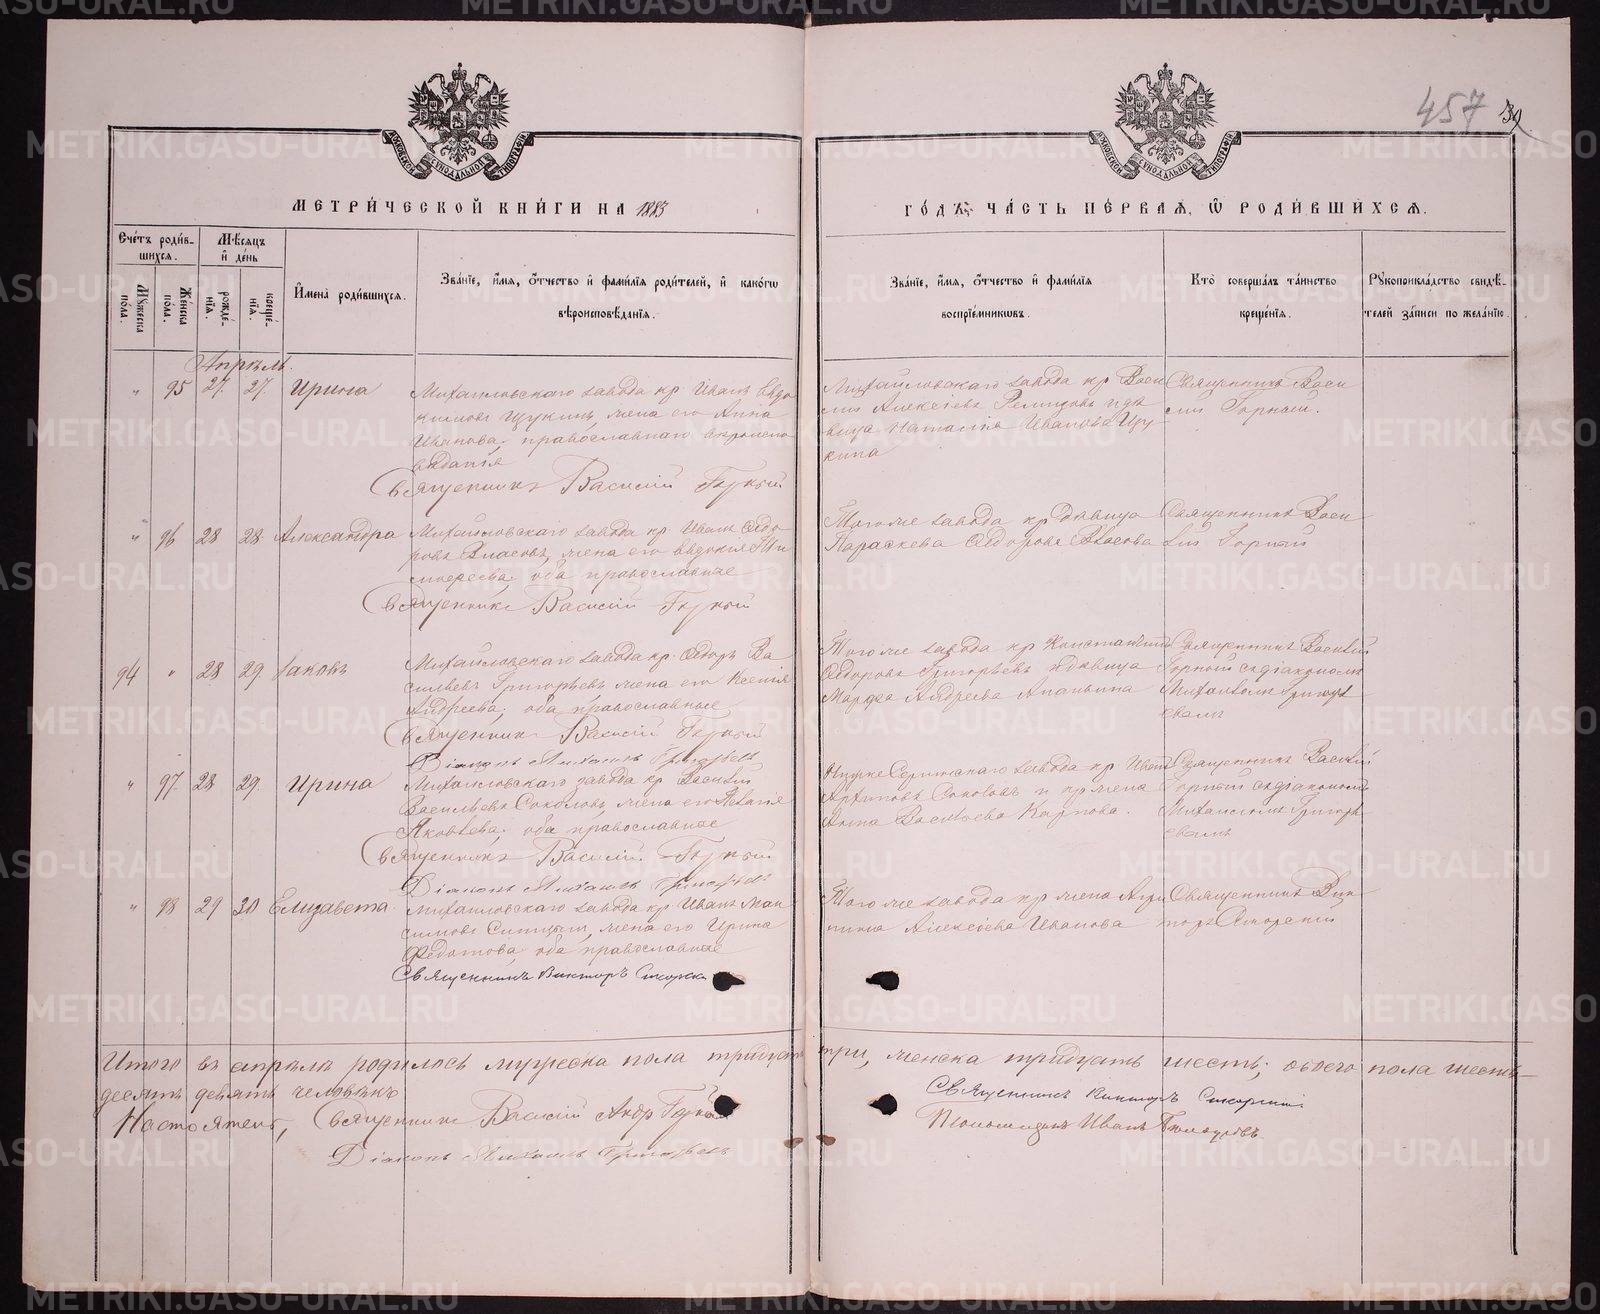 457
МЕТРИ́ЧЕСКОЙ КНИ́ГИ НА 1883
ГО́ДЪ ЧА́СТЬ ПЕ́РВАЯ, Ѡ РОДИ́ВШИХСЯ.
Сче́тъ роди́в-
шихся.
Мѣ́сяцъ
и҆ де́нь
Мꙋ́жеска
по́ла.
Же́нска
по́ла.
рожде́-
нїѧ.
креще́-
нїѧ.
И҆мена̀ роди́вшихся.
Зва́нїе, и҆́мѧ, ѻ҆́тчество и҆ фами́лїѧ роди́телей, и҆ како́гѡ
вѣроисповѣ́данїѧ.
Зва́нїе, и҆́мѧ, ѻ҆́тчество и҆ фами́лїѧ
воспрїе́мниковъ.
Кто̀ соверша́лъ та́инство
креще́нїѧ.
Рꙋкоприкла́дство свидѣ́-
телей за́писи по жела́нїю.
Апрѣль
" 95 27 27 Ирина
Михайловскаго завода кр Иванъ Евдо
кимовъ Щукинъ, жена его Анна
Иванова, православнаго вѣроиспо
вѣданія
Священникъ Василій Горный
Михайловскаго завода кр Васи
лій Алексѣевъ Ремизовъ и дѣ
вица Наталія Иванова Щу-
кина
Священникъ Васи
лій Горный.
" 96 28 28 Александра
Михайловскаго завода кр Иванъ Ѳедо
ровъ Власовъ, жена его Евдокія Ти
моѳеева, оба православные
Священникъ Василій Горный
Тогоже завода кр дѣвица
Параскева Ѳедорова Власова
Священникъ Васи
лій Горный
94 " 28 29 Іаковъ
Михайловскаго завода кр. Ѳедоръ Ва
сильевъ Григорьевъ жена его Ксенія
Андреева, оба православные
Священникъ Василій Горный
Діаконъ Михаилъ Григорьевъ
Тогоже завода кр Константинъ
Ѳедоровъ Григорьевъ и дѣвица
Марѳа Андреева Ананьина
Священникъ Василій
Горный съ діакономъ
Михаиломъ Григорь
евымъ
" 97 28 29 Ирина
Михайловскаго завода кр Василій
Васильевъ Соколовъ, жена его
Яковлева, оба православные
Священникъ Василій Горный
Діаконъ Михаилъ Григорьевъ
Нижне Сергинскаго завода кр Иванъ
Архиповъ и кр жена
Анна Васильева Карпова.
Священникъ Василій
Горный съ діакономъ
Михаиломъ Григорь
евымъ
" 98 29 30 Елизавета
Михайловскаго завода кр Иванъ Мак
симовъ Синицынъ, жена его Ирина
Федотова, оба православные
Священникъ Викторъ Сикорскі
Тогоже завода кр жена Агри
пина Алексѣева Иванова
Священникъ Вик
торъ Сикорскій
Итого въ апрѣлѣ родилось мужеска пола тридцать три, женска тридцать шесть; обоего пола шесть-
десятъ девять человѣкъ
Настоятель, Священникъ Василій Андр Горный
Діаконъ Михаилъ Григорьевъ
Священникъ Викторъ Сикорскій
Псаломщикъ Иванъ
METRIKI.GASO-URAL.RU